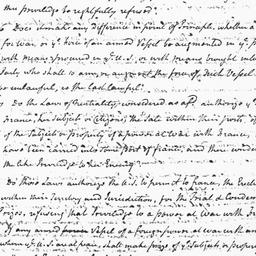 this priviledge be rightfully refused?
Does it make any difference in point of Principle, whether a
for War, in ye. ports of an armed Vessel be augmented in ye. p
with means procured in ye. U.S. or with means brought into
Party who shall so arm, or augment the force of such Vessel
be unlawful, is the last lawful?
Do the Laws of Neutrality, considered as afd. authorize ye.
France, her Subjects or citizens, the Sale within their ports, of
of the Subjects or property of a power at War with France,
have been carried into those ports by France, and there vended
the like Priviledge to her Enemy
Do those Laws authorize the U.S. to permit to France, the Erec
within their Territory and Jurisdiction, for the Trial & Condem
Prizes, refusing that Priviledge to a power at War with Fran
If any armed Vessel of a foreign power at War with an
whom ye. U.S. are at peace, shall make prize of ye. Subjects or proper